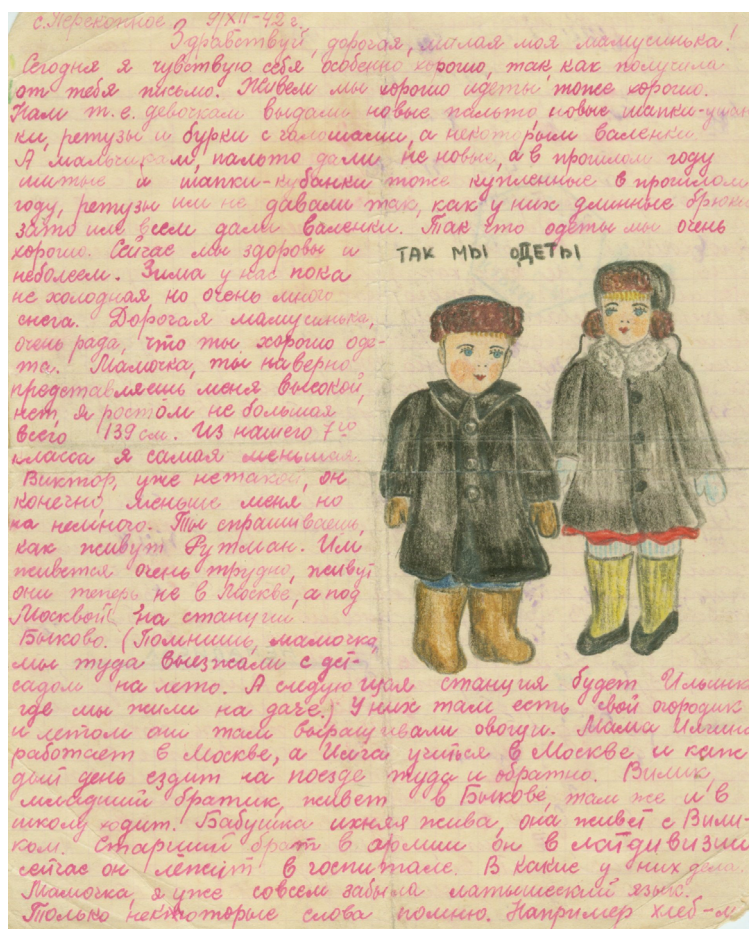 с. Перекопное 9/XII-42 г.
Здравствуй, дорогая, милая моя мамусинька!
Сегодня я чувствую себя особенно хорошо, так как получила
от тебя письмо. Живем мы хорошо одеты тоже хорошо.
Нам т.е. девочкам выдали новые пальто, новые шапки-ушан
ки, ретузы и бурки с галошами, а некоторым валенки.
А мальчикам, пальто дали не новые, а в прошлом году
шитые и шапки-кубанки тоже купленные в прошлом
году, ретузы им не давали так, как у них длинные брюки
зато им всем дали валенки. Так что одеты мы очень
хорошо. Сейчас мы здоровы и
неболеем. Зима у нас пока
не холодная но очень много
снега. Дорогая мамусинька,
очень рада, что ты хорошо оде-
та. Мамочка, ты наверно
представляешь меня высокой,
нет, я ростом не большая
всего 139 см. Из нашего 7го
класса я самая меньшая.
Виктор, уже нетакой, он
конечно, меньше меня но
на немного. Ты спрашиваешь,
как живут Рутман. Им
живется очень трудно, живут
они теперь не в Москве, а под
Москвой на станции
Быково. (Помнишь, мамочка,
мы туда выезжали с дет-
садом на лето. А следующая станция будет Ильинка
где мы жили на даче.) У них там есть свой огородик
и летом они там выращивали овощи. Мама
работает в Москве, а учиться в Москве и каж
дый день ездит на поезде туда и обратно. Вилик,
младший братик, живет в Быкове, там же и в
школу ходит. Бабушка ихняя жива, она живет с Вили-
ком. Старший брат в армии он в латдивизии
сейчас он лежит в госпитале. В какие у них дела.
Мамочка, я уже совсем забыла латышский язык.
Только некоторые слова помню. Например хлеб-м
ТАК МЫ ОДЕТЫ